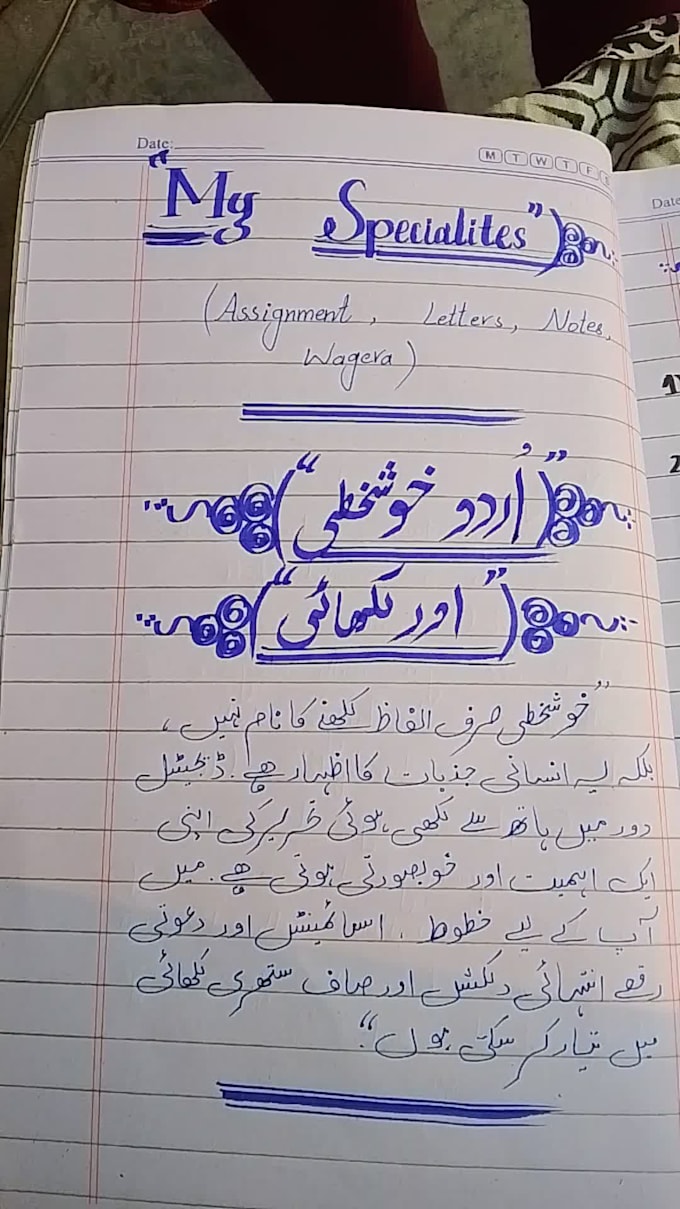 Date:
M T W T F
"My Specialites"
(Assignment, Letters, Notes,
Wagera)
"اُردو خوشخطی"
"اور لکھائی"
"خوشخطی صرف الفاظ لکھنے کا نام نہیں،
بلکہ یہ انسانی جذبات کا اظہار ہے. ڈیجیٹل
دور میں ہاتھ سے لکھی ہوئی تحریر کی اپنی
ایک اہمیت اور خوبصورتی ہوتی ہے. میں
آپ کے لیے خطوط، اسائمینٹس اور دعوتی
رقعے انتہائی دلکش اور صاف ستھری لکھائی
میں تیار کر سکتی ہوں"
Date
1
2